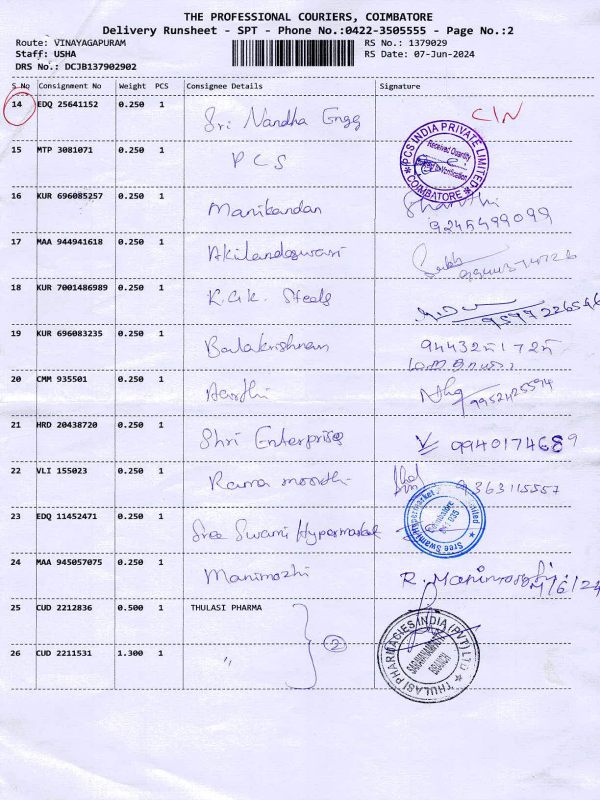 THE PROFESSIONAL COURIERS, COIMBATORE
Delivery Runsheet - SPT - Phone No.:0422-3505555 - Page No.:2
Route: VINAYAGAPURAM
RS No.: 1379029
Staff: USHA
RS Date: 07-Jun-2024
DRS No.: DCJB137902902
S No Consignment No Weight PCS Consignee Details Signature
14 EDQ 25641152 0.250 1 Sri Nandha Engg CIN
15 MTP 3081071 0.250 1 P C S
PCS INDIA PRIVATE LIMITED
Received Quantity
Verification
COIMBATORE
16 KUR 696085257 0.250 1 Manikandan Shanthi
9245499099
17 MAA 944941618 0.250 1 Akilandeswari
18 KUR 7001486989 0.250 1 K.G.K. Steels
9597226596
19 KUR 696083235 0.250 1 Balakrishnan 9443251725
20 CMM 935501 0.250 1 Aarthi 9952425594
21 HRD 20438720 0.250 1 Shri Enterprises 9940174689
22 VLI 155023 0.250 1 Rama moorthi 9363115557
23 EDQ 11452471 0.250 1 Sree Swami Hypermarket
Sree Swami Hypermarket Limited
Coimbatore
24 MAA 945057075 0.250 1 Manimozhi R. Manimozhi
7/6/24
25 CUD 2212836 0.500 1 THULASI PHARMA
2
THULASI PHARMACIES INDIA (PVT) LTD
BRANCH
26 CUD 2211531 1.300 1 "